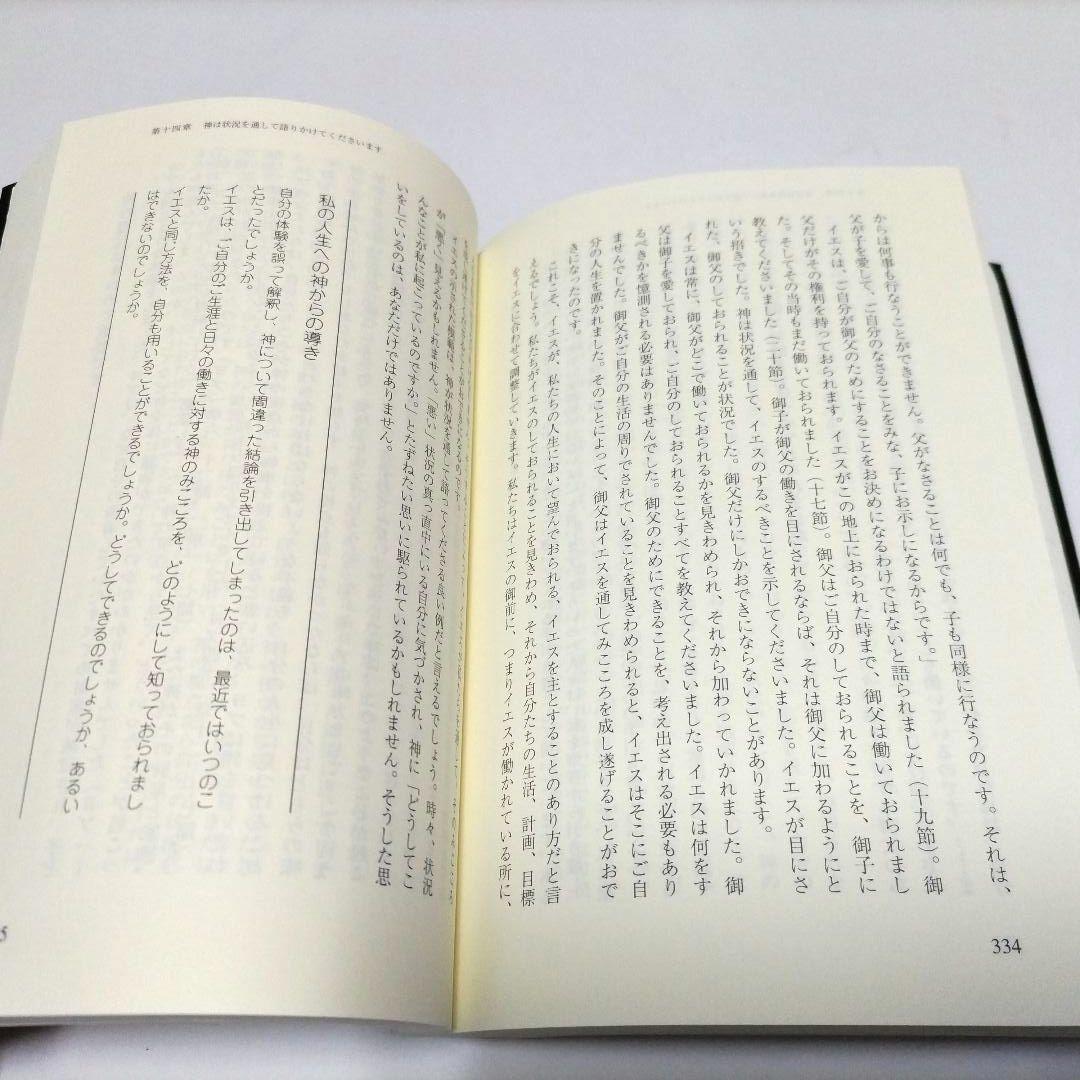 からは何事も行なうことができません。父がなさることは何でも、子も同様に行なうのです。それは、
父が子を愛して、ご自分のなさることをみな、子にお示しになるからです。」
イエスは、ご自分が御父のためにすることをお決めになるわけではないと語られました(十九節)。御
父だけがその権利を持っておられます。イエスがこの地上におられた時まで、御父は働いておられまし
た。そしてその当時もまだ働いておられました(十七節)。御父はご自分のしておられることを、御子に
教えてくださいました(二十節)。御子が御父の働きを目にされるならば、それは御父に加わるようにと
いう招きでした。神は状況を通して、イエスのするべきことを示してくださいました。イエスが目にさ
れた、御父のしておられることが状況でした。御父だけにしかおできにならないことがあります。
イエスは常に、御父がどこで働いておられるかを見きわめられ、それから加わっていかれました。御
父は御子を愛しておられ、ご自分のしておられることすべてを教えてくださいました。イエスは何をす
るべきかを憶測される必要はありませんでした。御父のためにできることを、考え出される必要もあり
ませんでした。御父がご自分の生活の周りでされていることを見きわめられると、イエスはそこにご自
分の人生を置かれました。そのことによって、御父はイエスを通してみこころを成し遂げることがおで
きになったのです。
これこそ、イエスが、私たちの人生において望んでおられる、イエスを主とすることのあり方だと言
えるでしょう。私たちがイエスのしておられることを見きわめ、それから自分たちの生活、計画、目標
をイエスに合わせて調整していきます。私たちはイエスの御前に、つまりイエスが働かれている所に、
334
第十四章 神は状況を通して語りかけてくださいます
が「悪く」見えるかもしれません。「悪い」状況の真っ直中にいる自分に気づかされ、神に「どうしてこ
んなことが私に起こっているのですか。」とたずねたい思いに駆られているかもしれません。そうした思
いをしているのは、あなただけではありません。
私の人生への神からの導き
自分の体験を誤って解釈し、神について間違った結論を引き出してしまったのは、最近ではいつのこ
とだったでしょうか。
イエスは、ご自分のご生涯と日々の働きに対する神のみこころを、どのようにして知っておられまし
たか。
イエスと同じ方法を、自分も用いることができるでしょうか。どうしてできるのでしょうか、あるい
はできないのでしょうか。
5